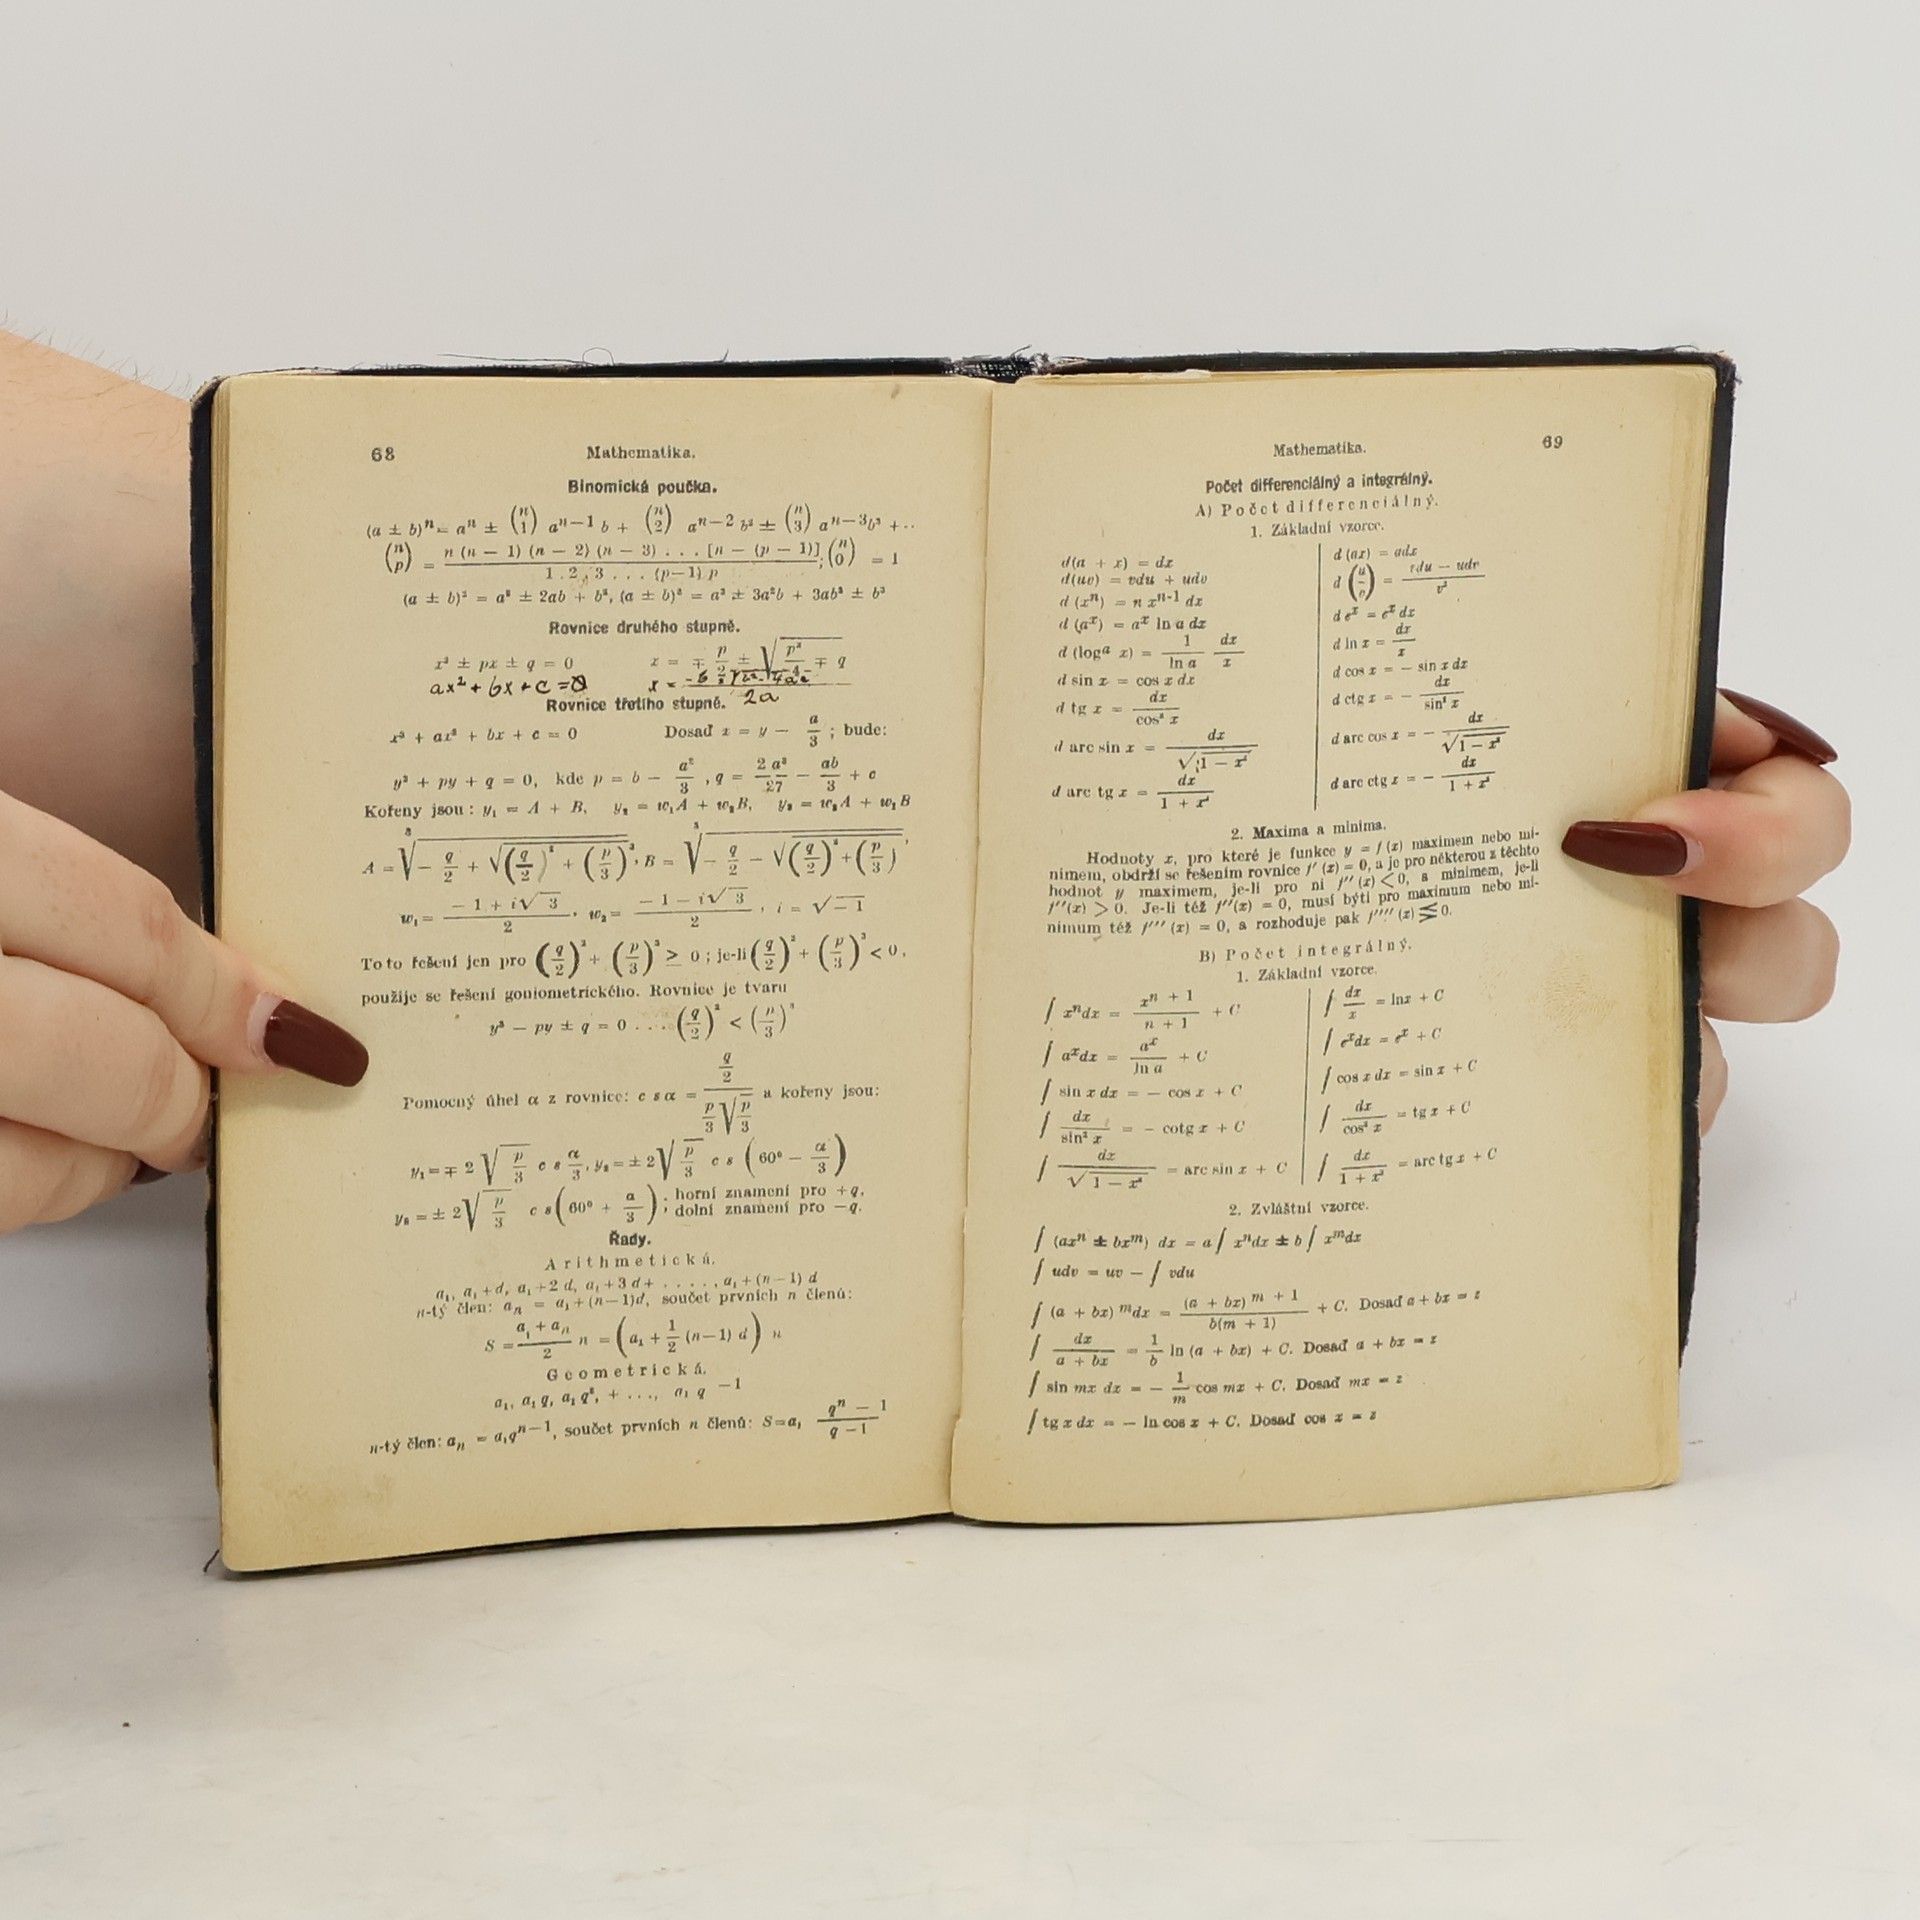 68
Mathematika.
Binomická poučka.
(a ± b)ⁿ = aⁿ ± (n 1) aⁿ⁻¹ b + (n 2) aⁿ⁻² b² ± (n 3) aⁿ⁻³b³ + ..
(n p) = n (n − 1) (n − 2) (n − 3) . . . [n − (p − 1)] / 1 . 2 . 3 . . . (p−1) p ; (n 0) = 1
(a ± b)² = a² ± 2ab + b², (a ± b)³ = a³ ± 3a²b + 3ab² ± b³
Rovnice druhého stupně.
x² ± px ± q = 0 x = ∓ p/2 ± √(p²/4 ∓ q)
ax² + bx + c = 0 x = −b ± √b²−4ac / 2a
Rovnice třetího stupně.
x³ + ax² + bx + c = 0 Dosaď x = y − a/3 ; bude:
y³ + py + q = 0, kde p = b − a²/3 , q = 2 a³/27 − ab/3 + c
Kořeny jsou : y₁ = A + B, y₂ = w₁A + w₂B, y₃ = w₂A + w₁B
A = ³√(− q/2 + √((q/2)² + (p/3)³)), B = ³√(− q/2 − √((q/2)² + (p/3)³)),
w₁ = −1 + i√3 / 2, w₂ = −1 − i√3 / 2, i = √−1
Toto řešení jen pro (q/2)² + (p/3)³ ≥ 0 ; je-li (q/2)² + (p/3)³ < 0,
použije se řešení goniometrického. Rovnice je tvaru
y³ − py ± q = 0 . . . (q/2)² < (p/3)³
Pomocný úhel α z rovnice: c s α = q/2 / p/3 √p/3 a kořeny jsou:
y₁ = ∓ 2 √p/3 c s α/3, y₂ = ± 2 √p/3 c s (60° − α/3)
y₃ = ± 2 √p/3 c s (60° + a/3) ; horní znamení pro +q,
dolní znamení pro −q.
Řady.
Arithmetická.
a₁, a₁ + d, a₁ + 2 d, a₁ + 3 d + . . . . ., a₁ + (n−1) d
n-tý člen: aₙ = a₁ + (n−1)d, součet prvních n členů:
S = a₁ + aₙ / 2 n = (a₁ + 1/2 (n−1) d) n
Geometrická.
a₁, a₁ q, a₁ q², + . . ., a₁ q −1
n-tý člen: aₙ = a₁qⁿ⁻¹, součet prvních n členů: S = a₁ qⁿ − 1 / q − 1
Mathematika.
69
Počet differenciálný a integrálný.
A) Počet differenciálný.
1. Základní vzorce.
d(a + x) = dx
d(uv) = vdu + udv
d (xⁿ) = n xⁿ⁻¹ dx
d (aˣ) = aˣ ln a dx
d (logᵃ x) = 1/ln a dx/x
d sin x = cos x dx
d tg x = dx/cos² x
d arc sin x = dx/√1 − x²
d arc tg x = dx/1 + x²
d (ax) = adx
d (u/v) = vdu − udv / v²
d eˣ = eˣ dx
d ln x = dx/x
d cos x = − sin x dx
d ctg x = − dx/sin² x
d arc cos x = − dx/√1 − x²
d arc ctg x = − dx/1 + x²
2. Maxima a minima.
Hodnoty x, pro které je funkce y = f (x) maximem nebo mi-
nimem, obdrží se řešením rovnice f′ (x) = 0, a je pro některou z těchto
hodnot y maximem, je-li pro ni f′′ (x) < 0, a minimem, je-li
f′′(x) > 0. Je-li též f′′(x) = 0, musí býti pro maximum nebo mi-
nimum též f′′′ (x) = 0, a rozhoduje pak f′′′′ (x) ≶ 0.
B) Počet integrálný.
1. Základní vzorce.
∫ xⁿdx = xⁿ ⁺ ¹ / n + 1 + C
∫ aˣdx = aˣ / ln a + C
∫ sin x dx = − cos x + C
∫ dx/sin² x = − cotg x + C
∫ dx/√1 − x² = arc sin x + C
∫ dx/x = lnx + C
∫ eˣdx = eˣ + C
∫ cos x dx = sin x + C
∫ dx/cos² x = tg x + C
∫ dx/1 + x² = arc tg x + C
2. Zvláštní vzorce.
∫ (axⁿ ± bxᵐ) dx = a ∫ xⁿdx ± b ∫ xᵐdx
∫ udv = uv − ∫ vdu
∫ (a + bx) ᵐdx = (a + bx) ᵐ ⁺ ¹ / b(m + 1) + C. Dosaď a + bx = z
∫ dx / a + bx = 1/b ln (a + bx) + C. Dosaď a + bx = z
∫ sin mx dx = − 1/m cos mx + C. Dosaď mx = z
∫ tg x dx = − ln cos x + C. Dosaď cos x = z